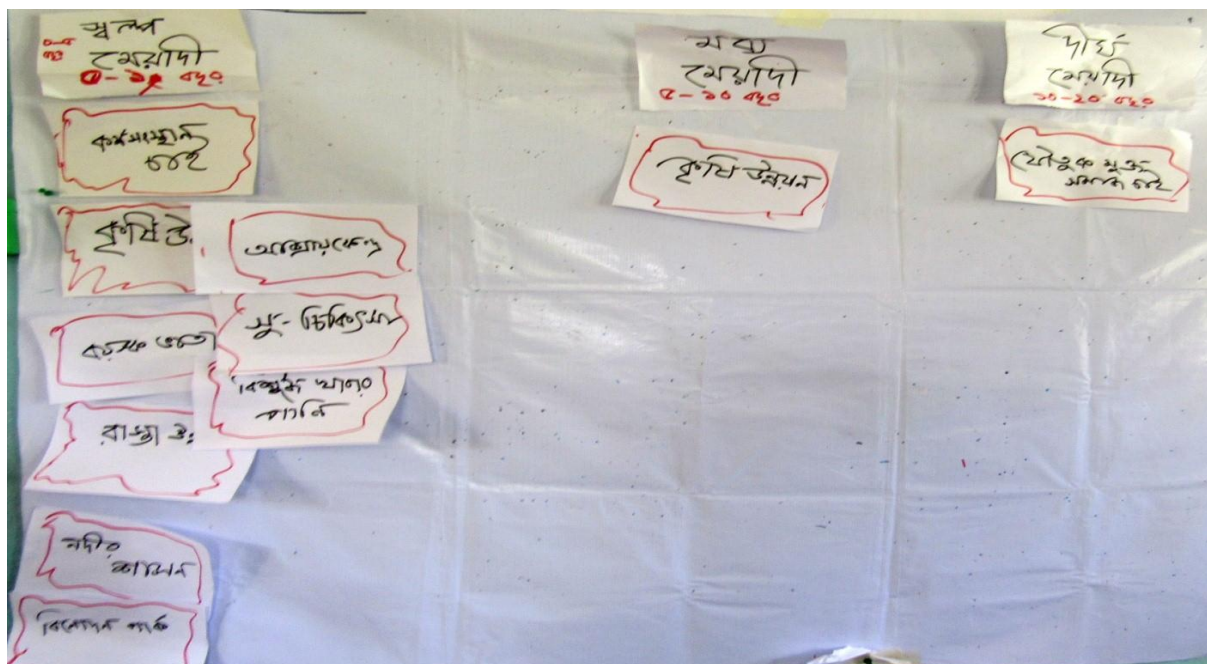 স্বল্প
মেয়াদী
০-১৫ বছর
কর্মসংস্থান
চাই
কৃষি উ
আশ্রয়কেন্দ্র
বয়স্ক ভাতা
সু-চিকিৎসা
রাস্তা উ
বিশুদ্ধ খাবার
পানি
নদীর
শাসন
বিনোদন পার্ক
মধ্য
মেয়াদী
৫-১০ বছর
কৃষি উন্নয়ন
দীর্ঘ
মেয়াদী
১০-২০ বছর
যৌতুক মুক্ত
সমাজ চাই